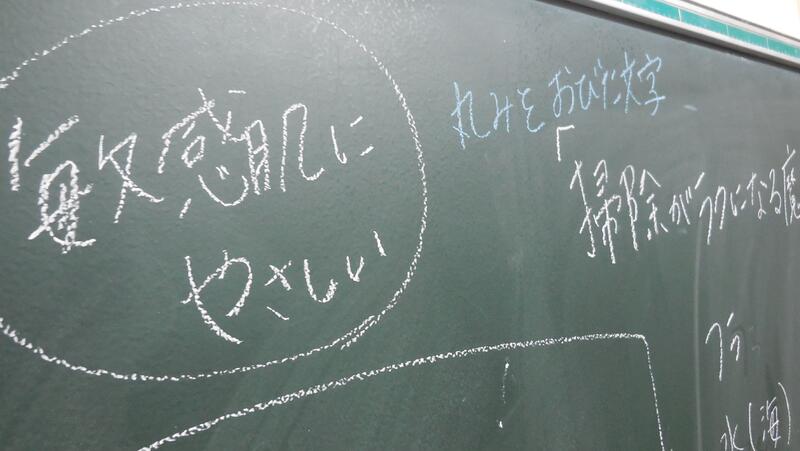 敏感肌に
やさしい
丸みをおびた文字
「掃除がラクになる魔
水(海)